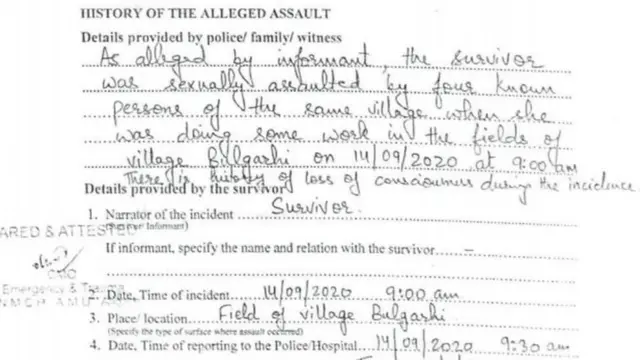 HISTORY OF THE ALLEGED ASSAULT
Details provided by police/ family/ witness
As alleged by informant, the survivor
was sexually assaulted by four known
persons of the same village when she
was doing some work in the fields of
village Bulgarhi on 14/09/2020 at 9:00 am
There is history of loss of consciousness during the incidence
Details provided by the survivor
1. Narrator of the incident Survivor.
ARED & ATTESTED
If informant, specify the name and relation with the survivor –
CMO
Emergency &
N.M.C.H A.M.U
2. Date, Time of incident 14/09/2020 9:00 am
3. Place/ location Field of village Bulgarhi
(Specify the type of surface where assault occurred)
4. Date, Time of reporting to the Police/Hospital 14/09/2020 9:30 am